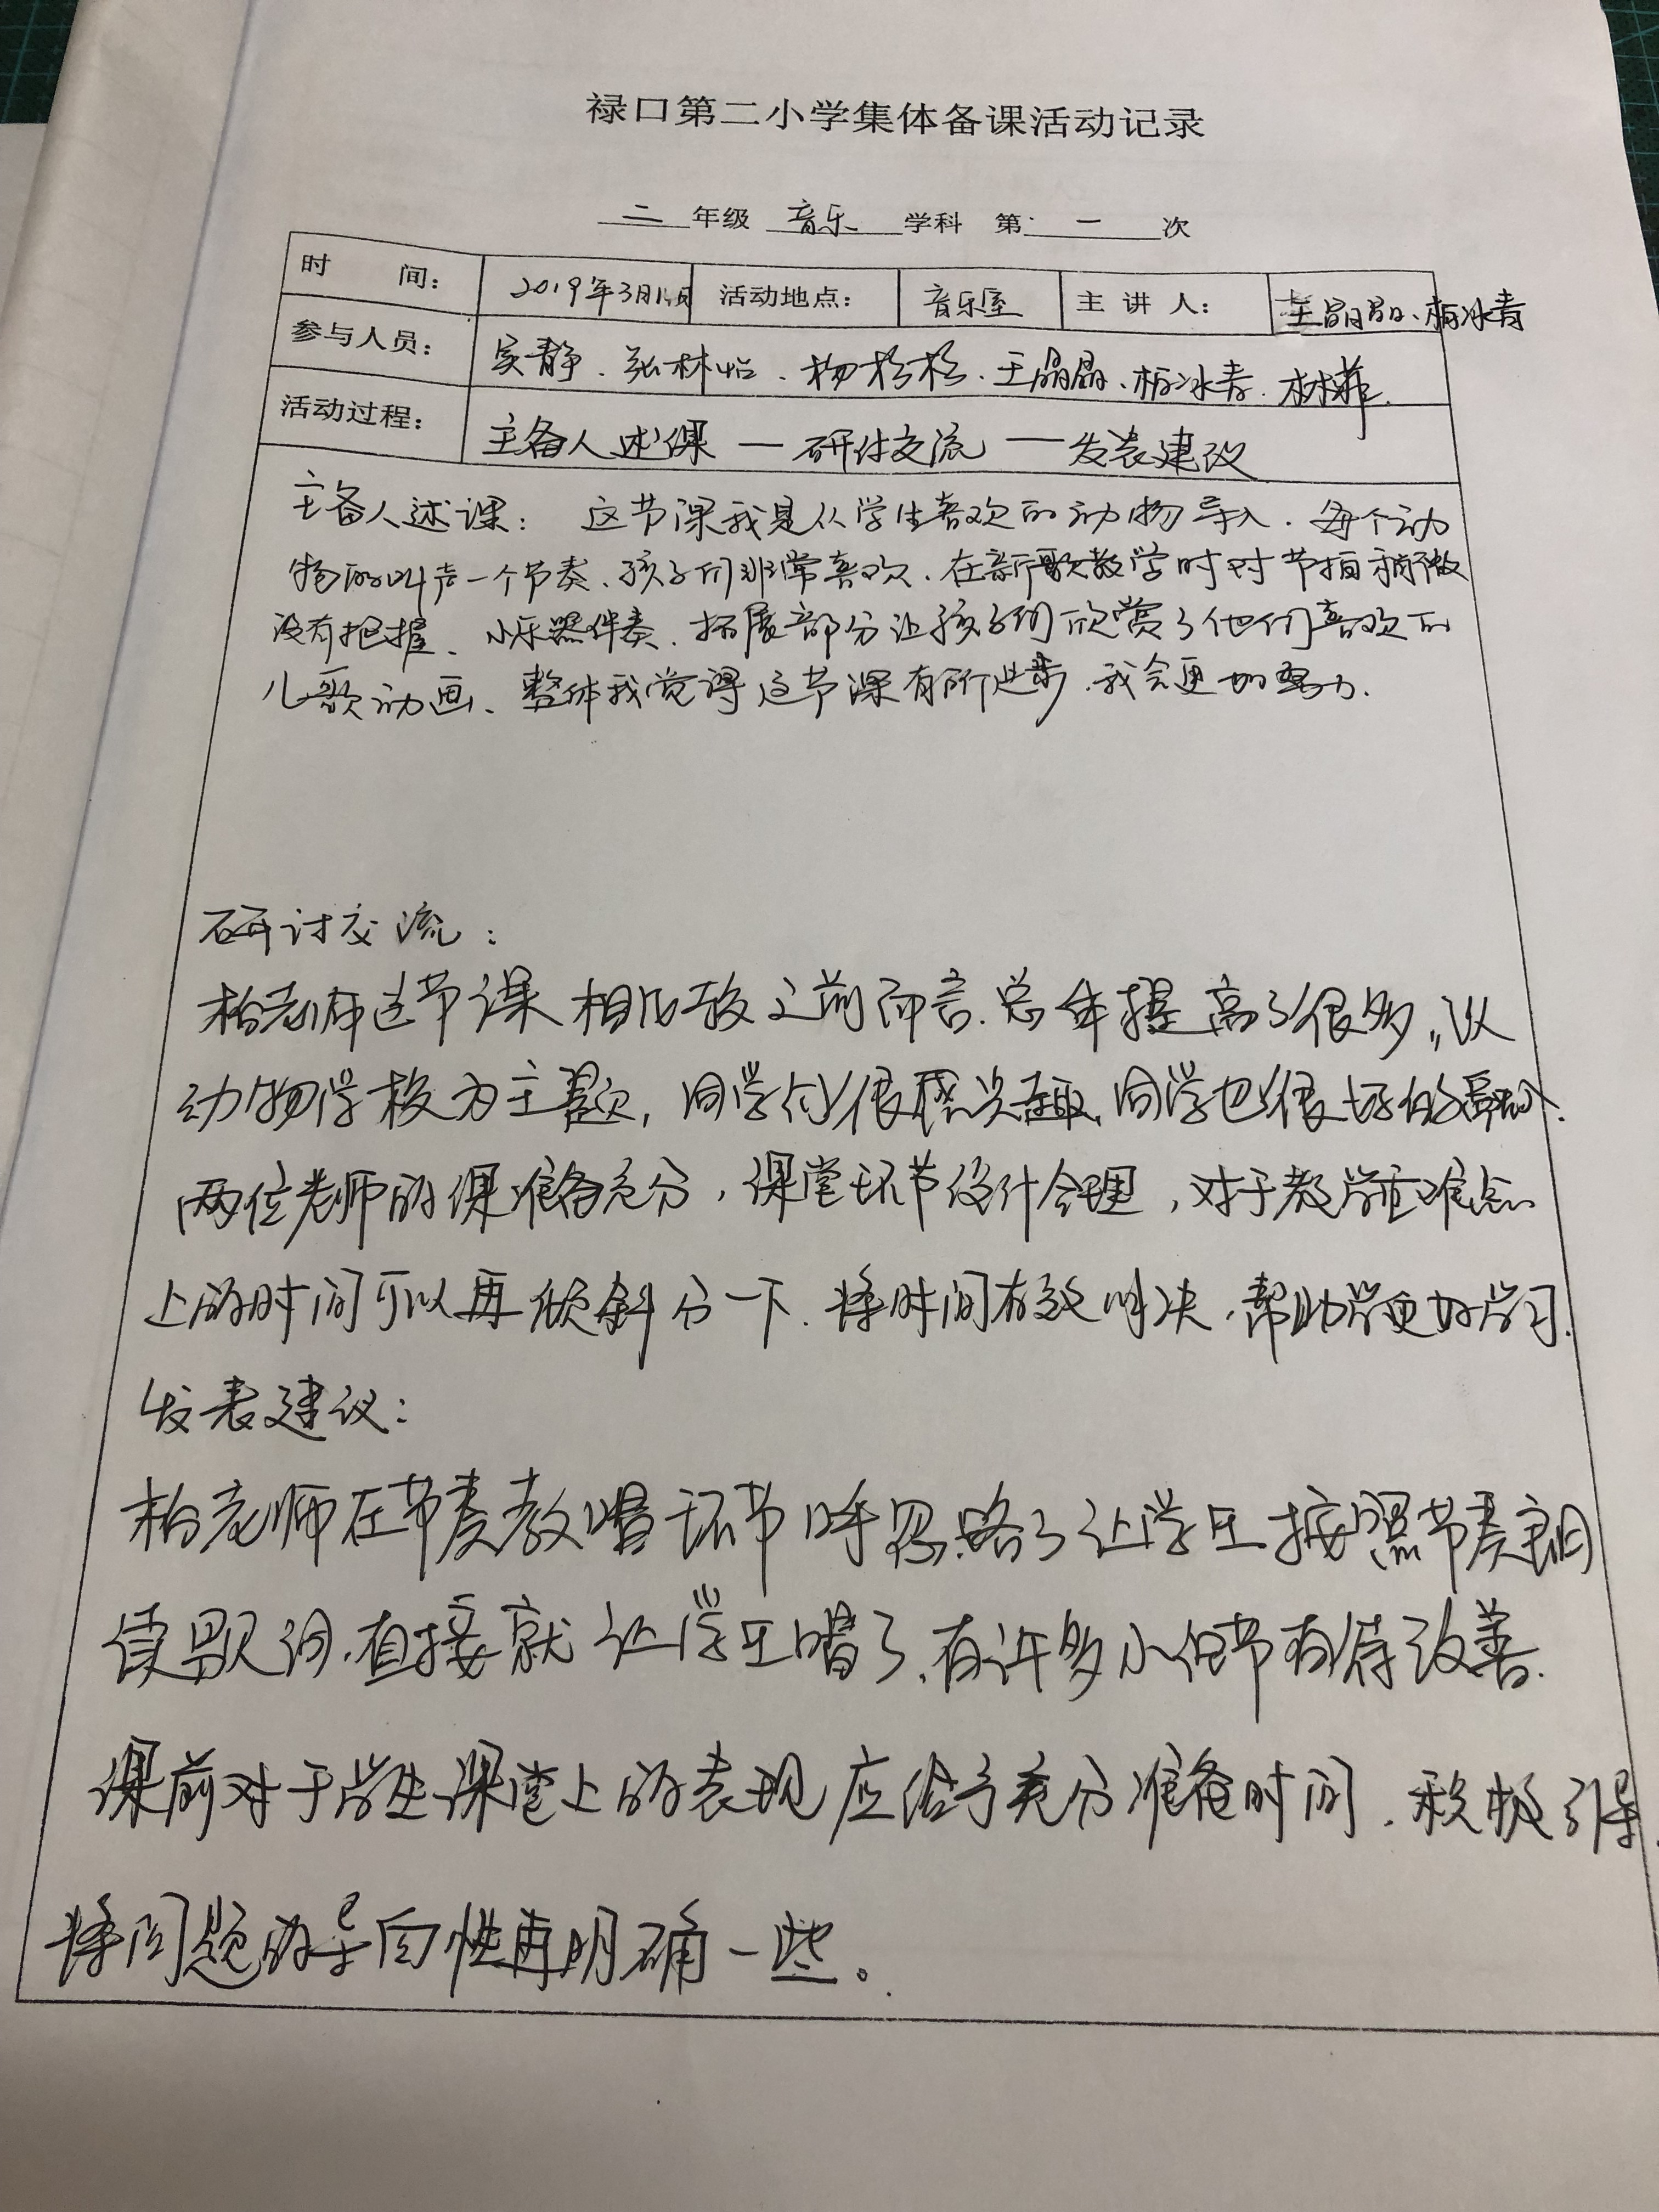 禄口第二小学集体备课活动记录
二 年级 音乐 学科 第 一 次
时 间： 2019年3月14日 活动地点： 音乐室 主 讲 人： 王晶晶、柏冰青
参与人员： 吴静、张林怡、杨杉杉、王晶晶、柏冰青、林菲.
活动过程： 主备人述课 — 研讨交流 — 发表建议
主备人述课： 这节课我是从学生喜欢的动物导入. 每个动
物的叫声一个节奏、孩子们非常喜欢. 在新歌教学时对节拍稍微
没有把握、小乐器伴奏、拓展部分让孩子们欣赏了他们喜欢的
儿歌动画、整体我觉得这节课有所进步.我会更加努力.
研讨交流：
柏老师这节课相比较之前而言.总体提高了很多，以
动物学校为主题，同学们很感兴趣，同学也很好的融入.
两位老师的课准备充分，课堂环节设计合理，对于教学重难点
上的时间可以再倾斜分一下.将时间有效解决，帮助学更好学习.
发表建议：
柏老师在节奏教唱环节时忽略了让学生按照节奏朗
读歌词.直接就让学生唱了.有许多小细节有待改善.
课前对于学生课堂上的表现应给予充分准备时间.积极引导.
将问题的导向性再明确一些。